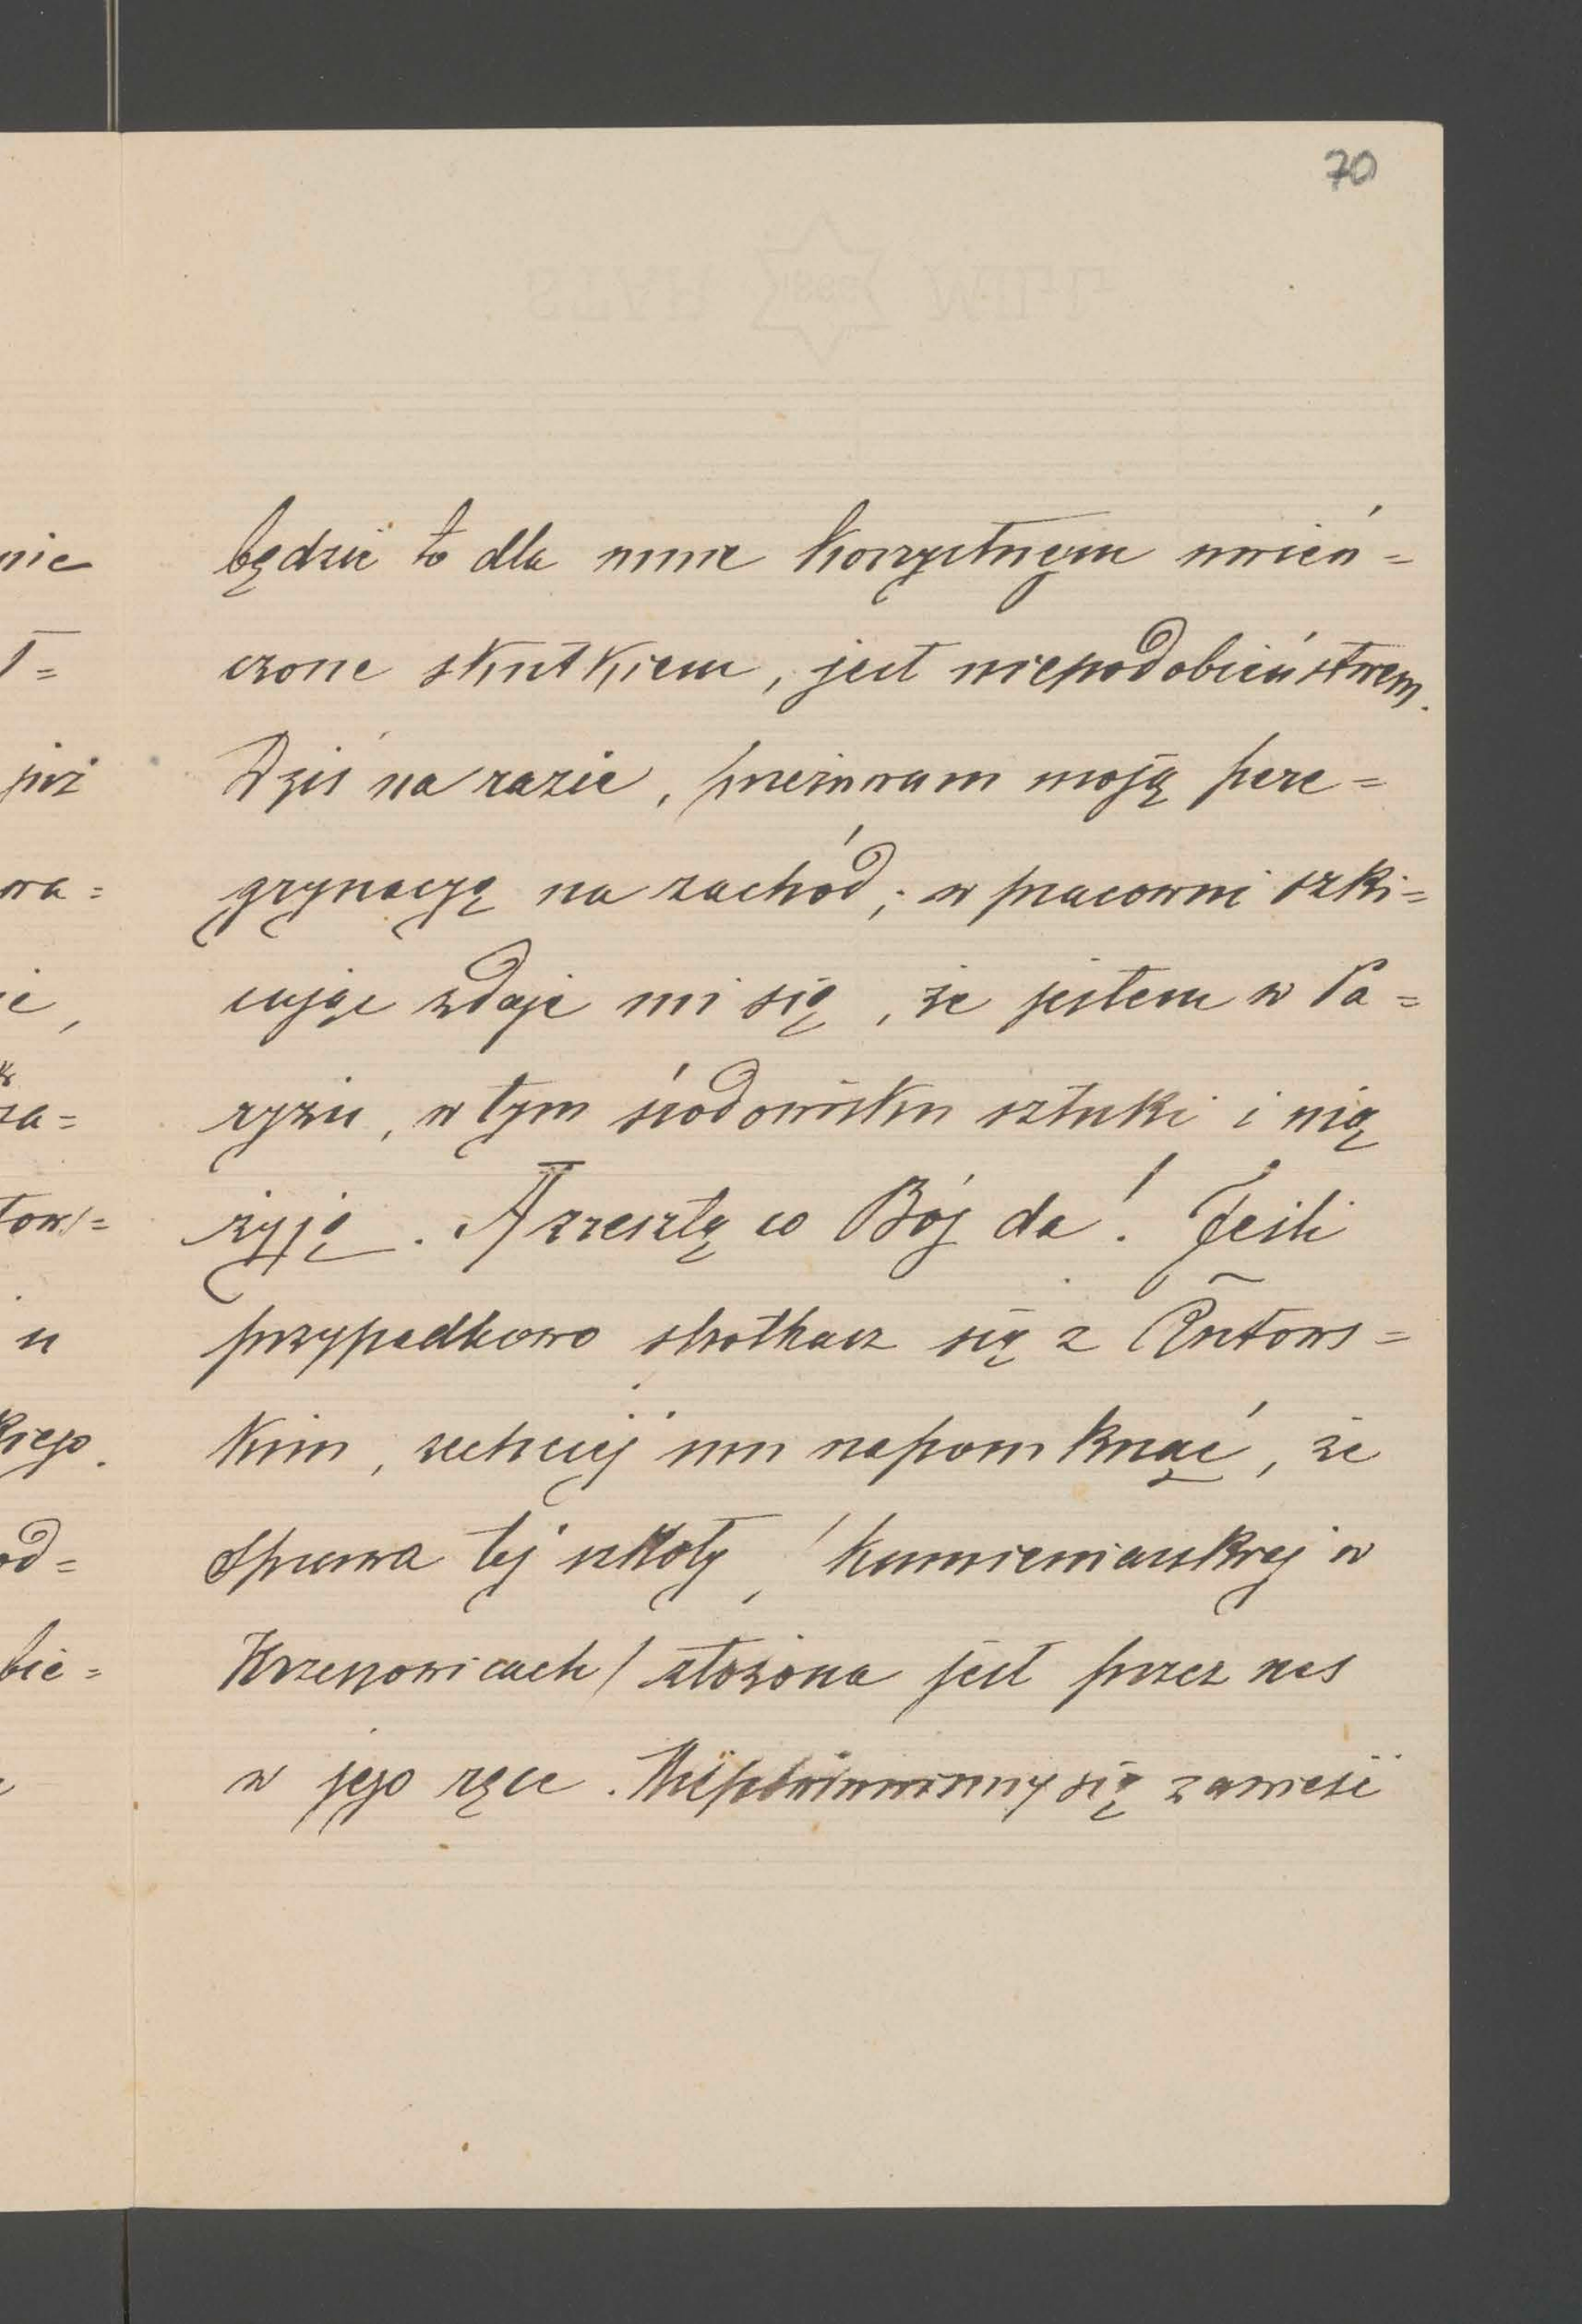 70
będzie to dla mnie korzystnym uwień=
czone skutkiem, jest niepodobieństwem.
Dziś na razie, przerywam moją pere=
grynację na zachód; w pracowni szki=
cując zdaje mi się, że jestem w Pa=
ryżu, w tym środowisku sztuki i nią
żyję. A zresztą co Bóg da! Jeśli
przypadkowo spotkasz się z Antows=
kim, zechciej mu napomknąć, że
sprawa tej szkoły /kamieniarskiej w
Krzeszowicach/ złożona jest przez nas
w jego ręce. się zawieść
nie
ł=
już
wa=
ie,
za=
tows=
u
kiego.
od=
bie=